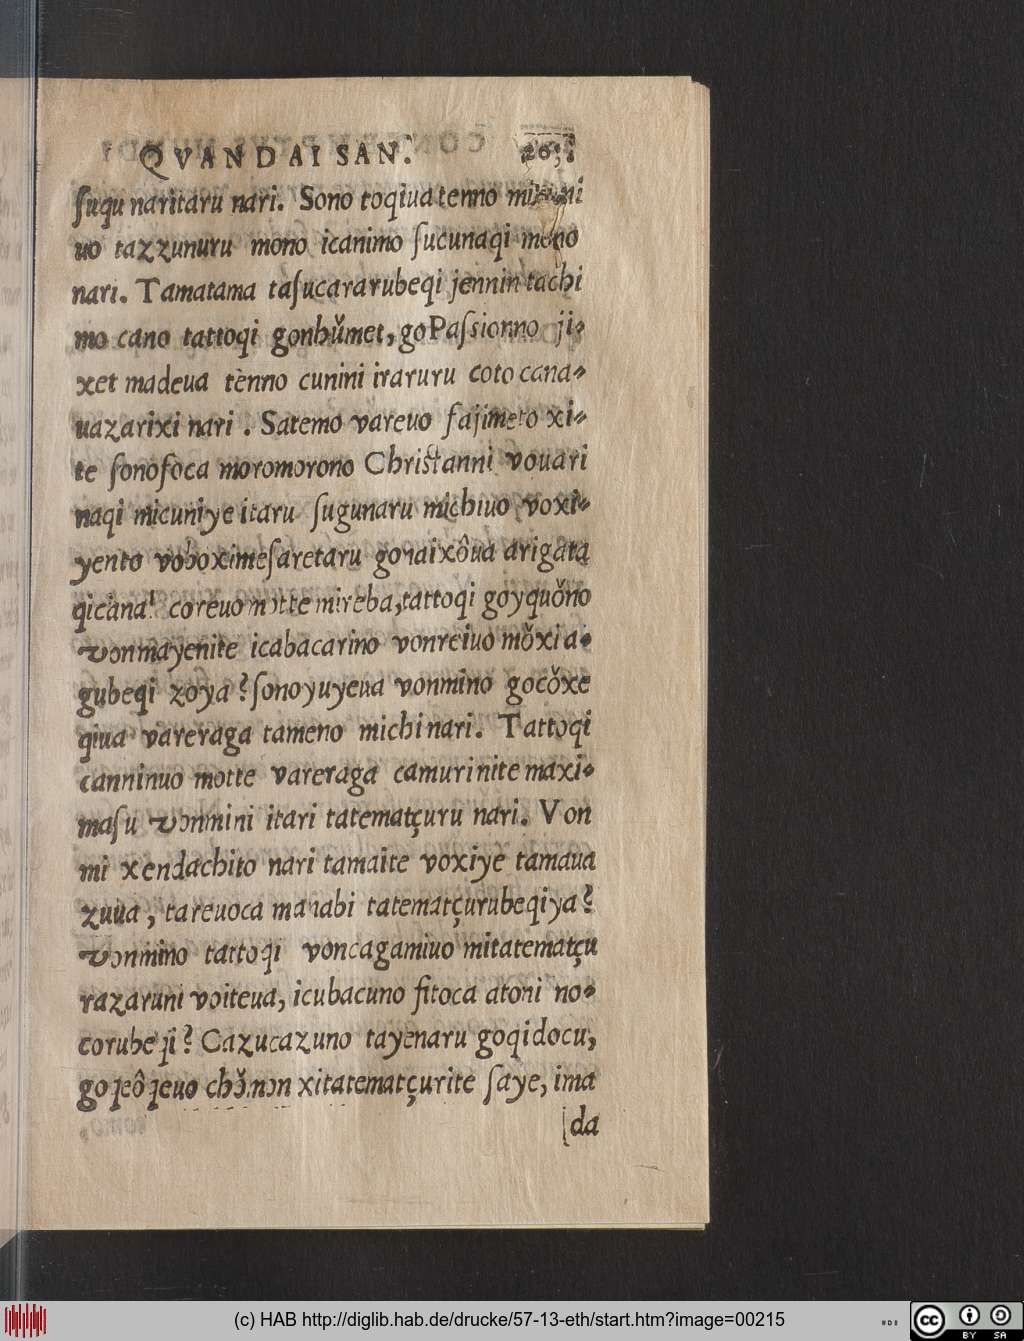 QVANDAI SAN.
ſuqu naritaru nari. Sono toqiua tenno
uo tazzunuru mono icanimo ſucunaqi mono
nari. Tamatama taſucararubeqi jennin tachi
mo cano tattoqi gonbŭmet, go Paſsionno ji-
xet madeua tenno cunini iraruru coto cana-
uazarixi nari. Satemo vareuo fajimeto xi-
te ſonofoca moromorono Chriſtanni vouari
naqi micuniye itaru ſugunaru michiuo voxi-
yento voboximeſaretaru gotaixôua arigata
qicana! coreuo motte mireba, tattoqi goyquǒno
vonmayenite icabacarino vonreiuo mǒxi a-
gubeqi zoya? ſonoyuyeua vonmino gocǒxe
qiua vareraga tameno michi nari. Tattoqi
canninuo motte vareraga camurinite maxi-
maſu vonmini itari tatematçuru nari. Von
mi xendachito nari tamaite voxiye tamaua
zuua, tareuoca manabi tatematçurubeqiya?
vonmino tattoqi voncagamiuo mitatematçu
razaruni voiteua, icubacuno fitoca atoni no-
corubeqi? Cazucazuno tayenaru goqidocu,
goxeôxeuo chǒmon xitatematçurite ſaye, ima
da
(c) HAB http://diglib.hab.de/drucke/57-13-eth/start.htm?image=00215
cc
BY SA